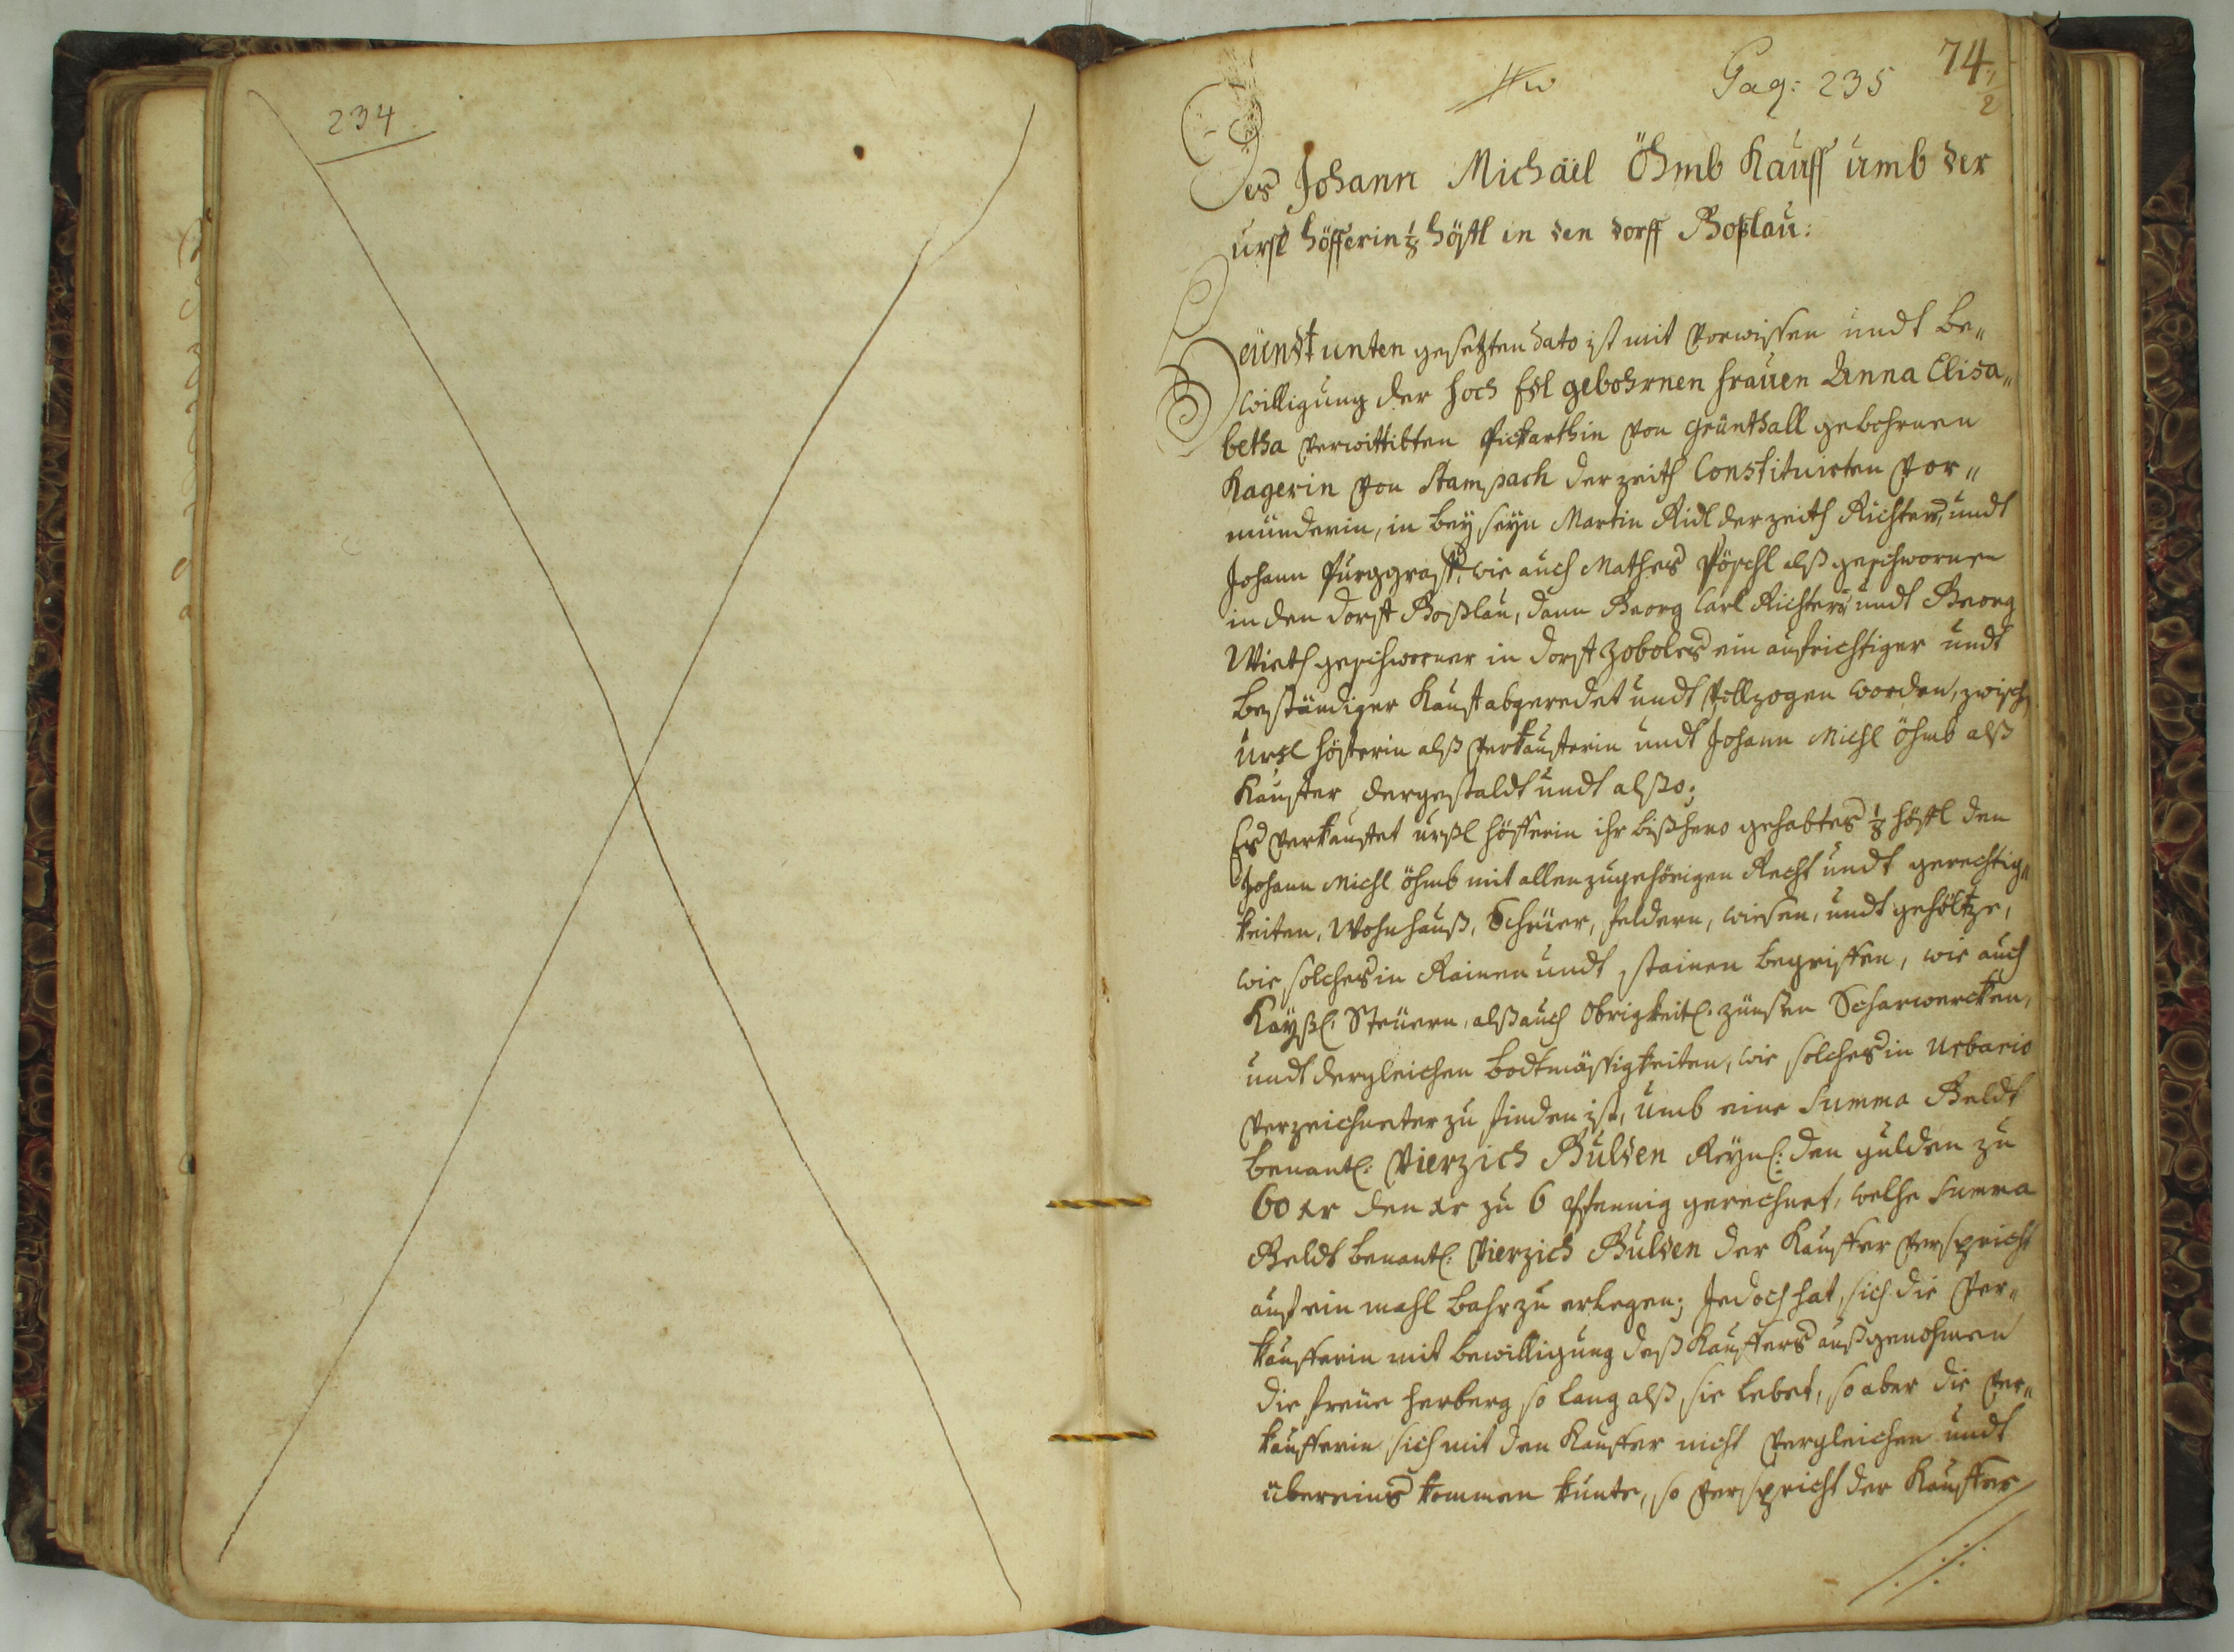 234.
Pag: 235
74
2
Des Johann Michäel Öhmb Kauff umb der
ursl Höfferin 1/8 Höffl in den dorff Goßlau:
Heünt unten gesetzten dato ist mit Vorwissen undt be„
willigung der Hoch Edl gebohrnen frauen Anna Elisa„
betha verwittibten Pickarthin von Grünthall gebohrnen
Kagerin von Stampach der zeith Constituirten Vor„
münderin, in beyseyn Martin Ridl der zeith Richters, undt
Johann Purggraff, wie auch Mathes Pöschl alß geschwornen
in den dorff Goßlau, dann Georg Carl Richters undt Georg
Wirth geschworner in dorff Zoboles ein aufrichtiger undt
beständiger Kauff abgeredet undt Vollzogen worden, zwisch:
ursl Höfferin alß Verkaufferin undt Johann Michl Öhmb alß
Kauffer dergestaldt undt alßo;
Es Verkauffet urßl Höfferin ihr bißhero gehabtes 1/8 Höffl den
Johann Michl Öhmb mit allen zugehörigen Recht undt gerechtig„
keiten, Wohnhauß, Scheüer, feldern, wiesen, undt gehöltze,
wie solches in Rainen undt stainen begriffen, wie auch
Kayßl: Steüern, alß auch Obrigkeitl: zünßen Scharwercken,
undt dergleichen bodtmässigkeiten, wie solches in Urbario
Verzeichneter zu finden ist, umb eine Summa Geldt
benantl: Vierzich Gulden Reynl: den gulden zu
60 xr den xr zu 6 Pfennig gerechnet, welche Summa
Geldt benantl: Vierzich Gulden der Kauffer verspricht
auf ein mahl bahr zu erlegen; Jedoch hat sich die Ver„
kaufferin mit bewilligung deß Kauffers außgenohmen
die freüe Herberg so lang alß sie lebet, so aber die Ver„
kaufferin sich mit den Kauffer nicht Vergleichen undt
übereins kommen kunte, so verspricht der Kauffer